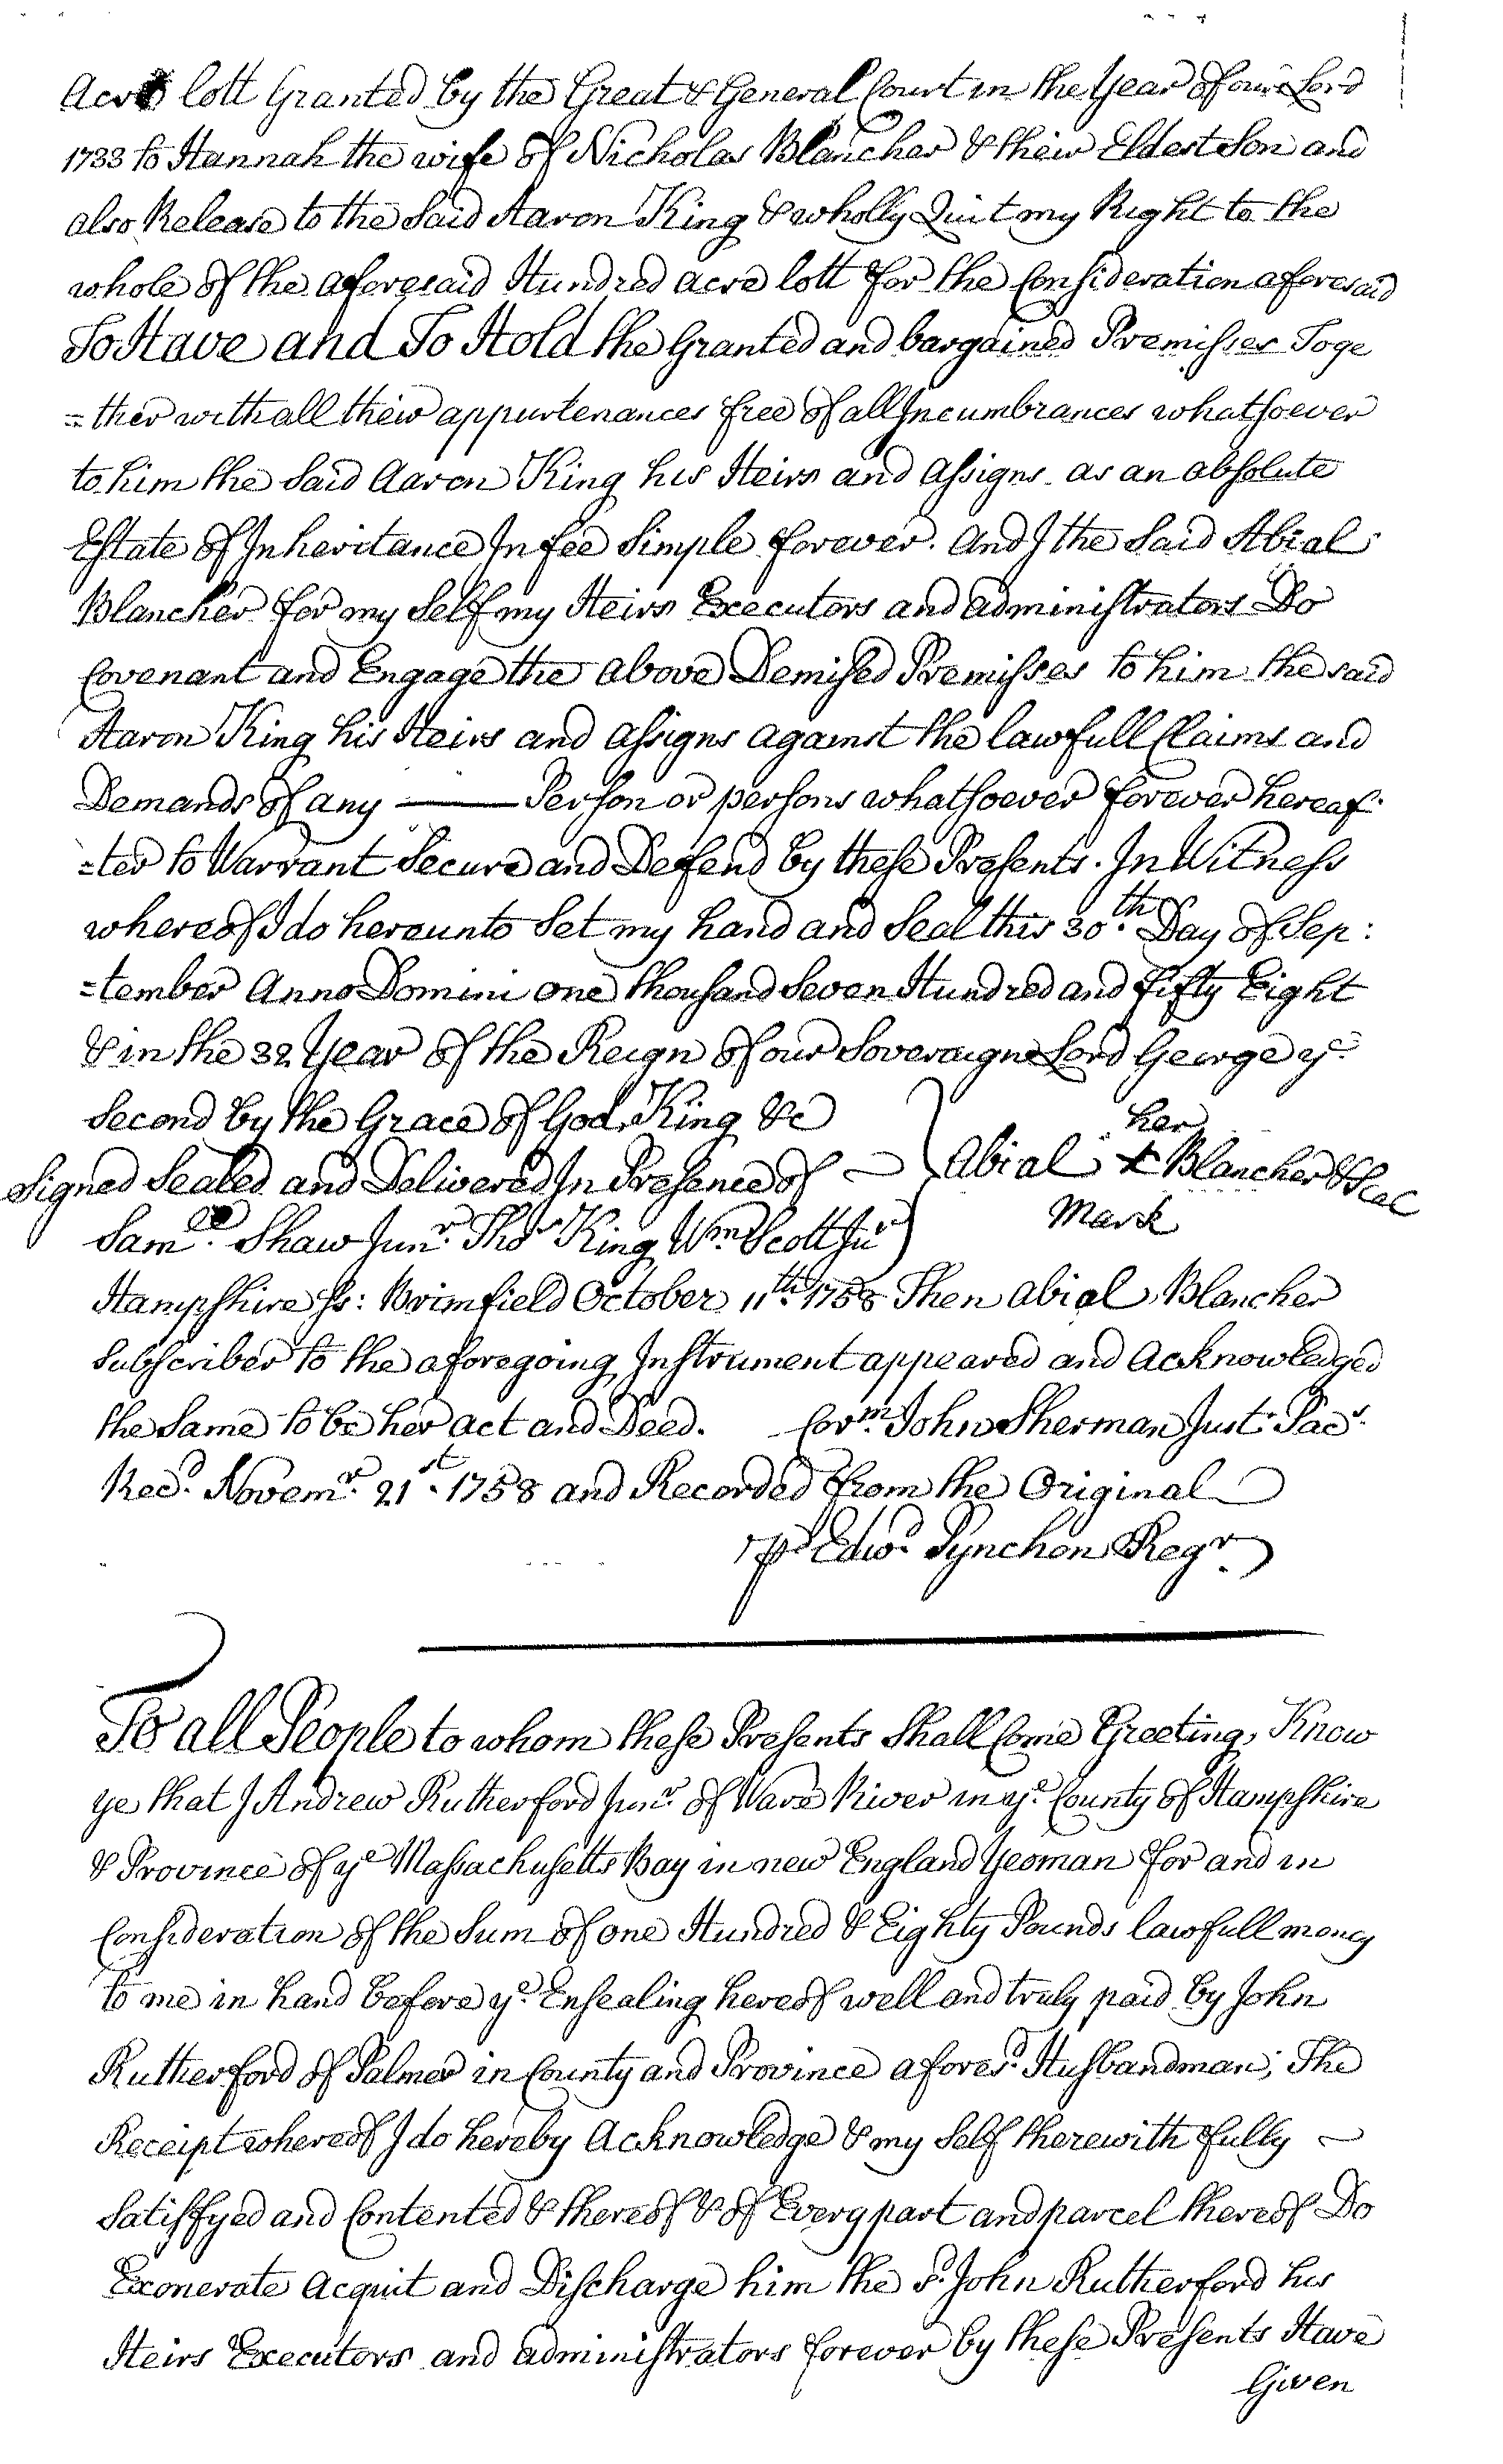 Acre lott Granted by the Great & General Court in the Year of our Lord
1733 to Hannah the wife of Nicholas Blancher & their Eldest Son and
also Release to the Said Aaron King & wholly Quit my Right to the
whole of the aforesaid Hundred acre lott for the Consideration aforesaid
To Have and To Hold the Granted and bargained Premisses Toge
=ther with all their appurtenances free of all Incumbrances whatsoever
to him the Said Aaron King his Heirs and Assigns as an absolute
Estate of Inheritance In fee Simple forever. And I the Said Abial
Blancher for my Self my Heirs Executors and administrators Do
Covenant and Engage the above Demised Premisses to him the said
Aaron King his Heirs and Assigns against the lawfull Claims and
Demands of any —— Person or persons whatsoever forever hereaf:
=ter to Warrant Secure and Defend by these Presents. In Witness
whereof I do hereunto Set my hand and Seal this 30th. Day of Sep:
=tember Anno Domini one thousand Seven Hundred and fifty Eight
& in the 32 Year of the Reign of our Soveraigne Lord George ye
Second by the Grace of God King &c
her
Signed Sealed and Delivered In Presence of — } Abial + Blancher & Seal
Mark
Saml. Shaw Junr. Thos King Wm Scott Jur
Hampshire ss: Brimfield October 11th. 1758 Then Abial Blancher
Subscriber to the aforegoing Instrument appeared and Acknowledged
the Same to be her act and Deed. Corm. John Sherman Just: Pacs.
Recd. Novemr. 21st. 1758 and Recorded from the Original
pr Edwd. Pynchon Regr.
To all People to whom these Presents Shall Come Greeting, Know
ye that I Andrew Rutherford Junr. of Ware River in ye. County of Hampshire
& Province of ye Massachusetts Bay in new England Yeoman for and in
Consideration of the Sum of one Hundred & Eighty Pounds lawfull money
to me in hand before ye. Ensealing hereof well and truly paid by John
Rutherford of Palmer in County and Province aforesd. Husbandman; The
Receipt whereof I do hereby Acknowledge & my Self therewith fully —
Satisfyed and Contented & thereof & of Every part and parcel thereof Do
Exonerate Acquit and Discharge him the sd. John Rutherford his
Heirs Executors and administrators forever by these Presents Have
Given